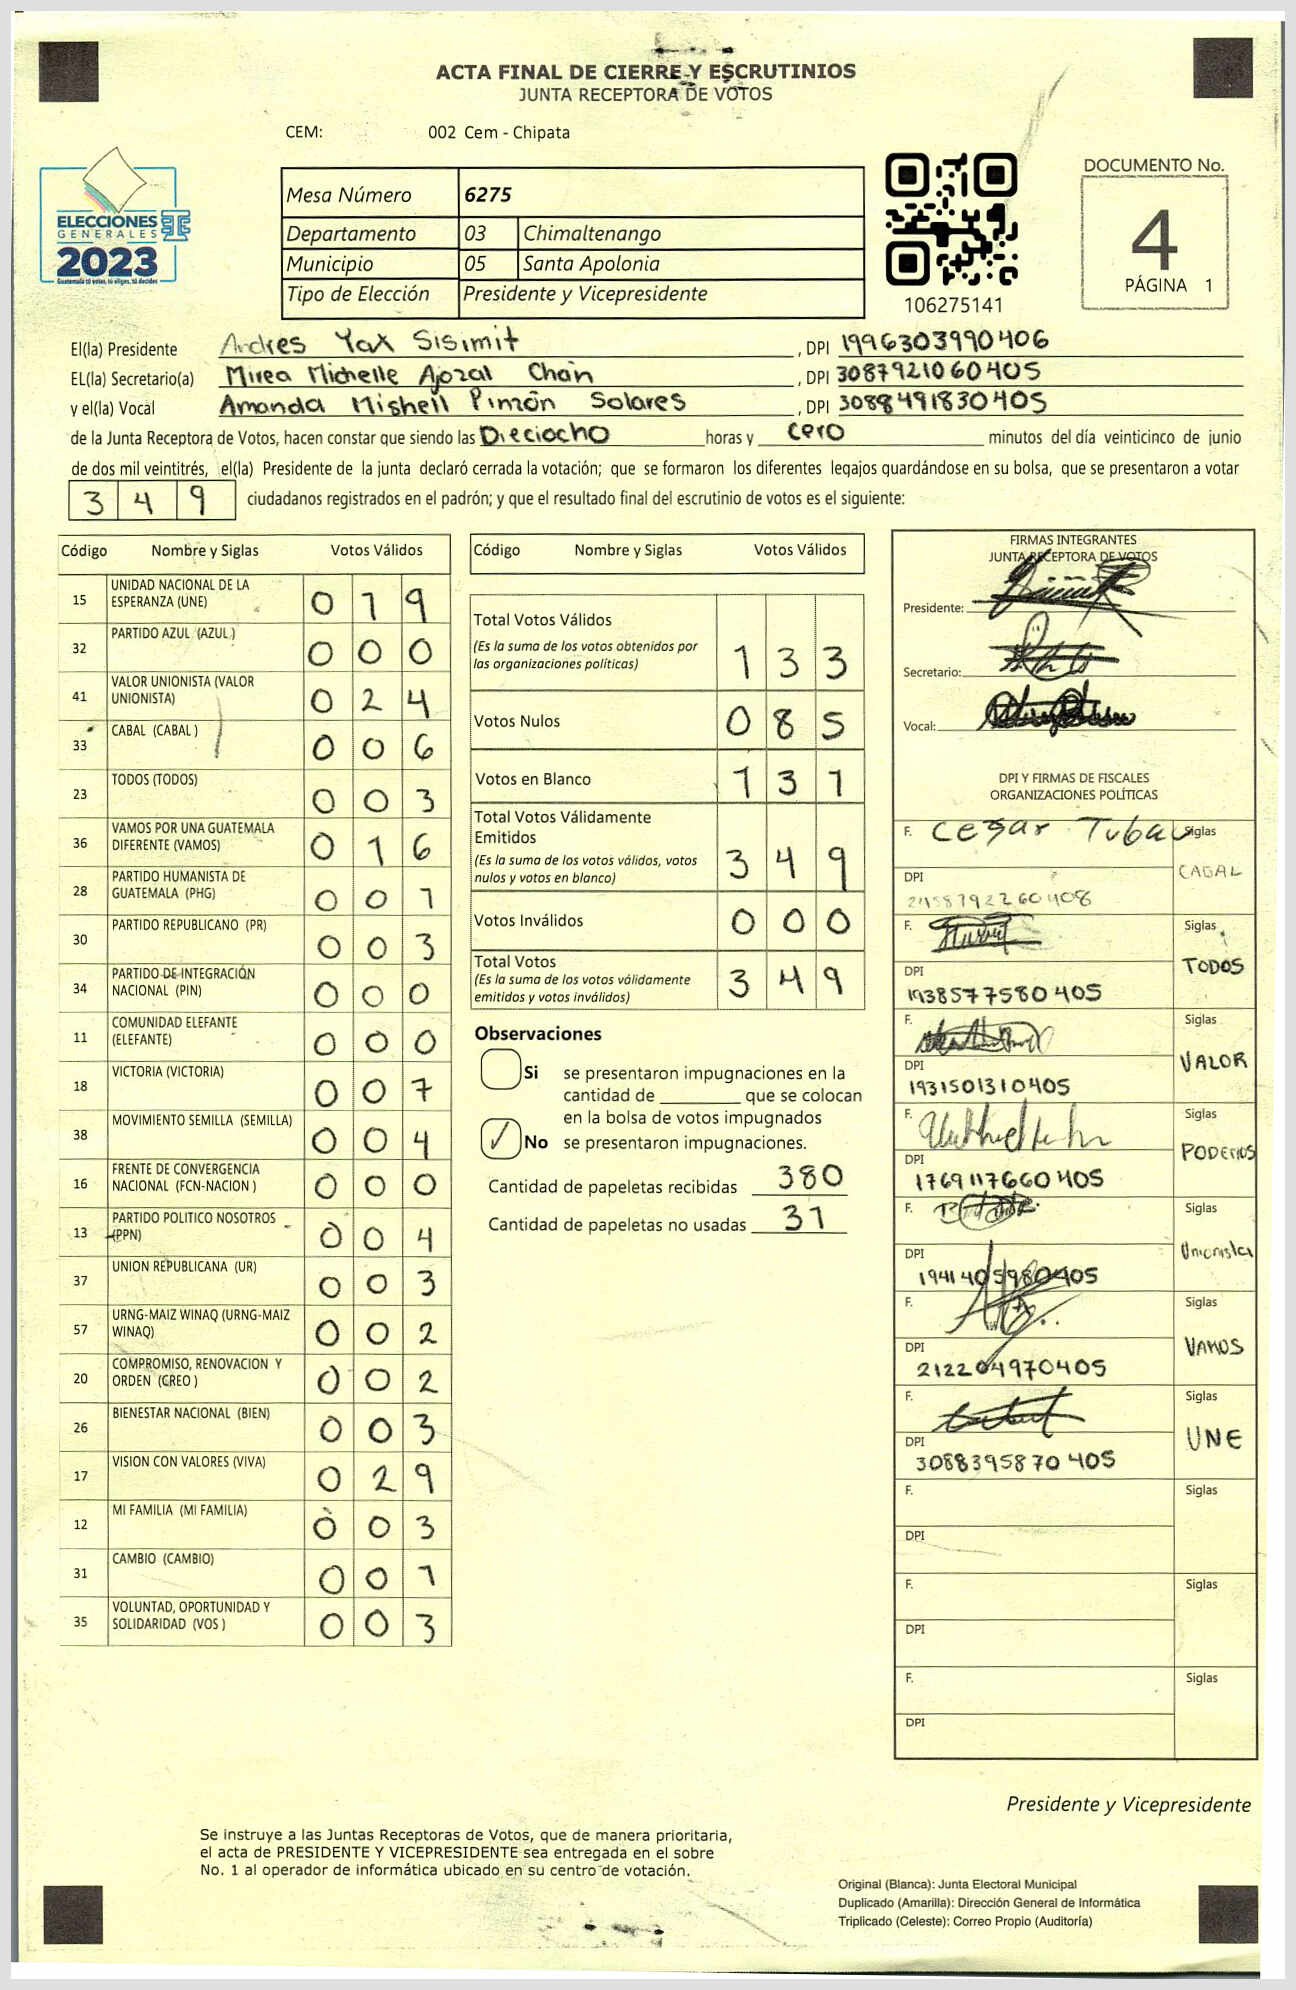 ACTA FINAL DE CIERRE Y ESCRUTINIOS
JUNTA RECEPTORA DE VOTOS
CEM: 002 Cem - Chipata
ELECCIONES
GENERALES
2023
Guatemala tú votas, tú eliges, tú decides
Mesa Número 6275
Departamento 03 Chimaltenango
Municipio 05 Santa Apolonia
Tipo de Elección Presidente y Vicepresidente
106275141
DOCUMENTO No.
4
PÁGINA 1
El(la) Presidente Andres Yax Sisimit , DPI 1996303990406
EL(la) Secretario(a) Mirea Michelle Ajozal Chan , DPI 3087921060405
y el(la) Vocal Amanda Mishell Pinzón Solares , DPI 3088491830405
de la Junta Receptora de Votos, hacen constar que siendo las Dieciocho horas y cero minutos del día veinticinco de junio
de dos mil veintitrés, el(la) Presidente de la junta declaró cerrada la votación; que se formaron los diferentes legajos guardándose en su bolsa, que se presentaron a votar
349 ciudadanos registrados en el padrón; y que el resultado final del escrutinio de votos es el siguiente:
Código Nombre y Siglas Votos Válidos
15 UNIDAD NACIONAL DE LA ESPERANZA (UNE) 019
32 PARTIDO AZUL (AZUL) 000
41 VALOR UNIONISTA (VALOR UNIONISTA) 024
33 CABAL (CABAL ) 006
23 TODOS (TODOS) 003
36 VAMOS POR UNA GUATEMALA DIFERENTE (VAMOS) 016
28 PARTIDO HUMANISTA DE GUATEMALA (PHG) 001
30 PARTIDO REPUBLICANO (PR) 003
34 PARTIDO DE INTEGRACIÓN NACIONAL (PIN) 000
11 COMUNIDAD ELEFANTE (ELEFANTE) 000
18 VICTORIA (VICTORIA) 007
38 MOVIMIENTO SEMILLA (SEMILLA) 004
16 FRENTE DE CONVERGENCIA NACIONAL (FCN-NACION ) 000
13 PARTIDO POLITICO NOSOTROS (PPN) 004
37 UNION REPUBLICANA (UR) 003
57 URNG-MAIZ WINAQ (URNG-MAIZ WINAQ) 002
20 COMPROMISO, RENOVACION Y ORDEN (CREO ) 002
26 BIENESTAR NACIONAL (BIEN) 003
17 VISION CON VALORES (VIVA) 029
12 MI FAMILIA (MI FAMILIA) 003
31 CAMBIO (CAMBIO) 001
35 VOLUNTAD, OPORTUNIDAD Y SOLIDARIDAD (VOS ) 003
Código Nombre y Siglas Votos Válidos
Total Votos Válidos
(Es la suma de los votos obtenidos por
las organizaciones políticas) 133
Votos Nulos 085
Votos en Blanco 131
Total Votos Válidamente
Emitidos
(Es la suma de los votos válidos, votos
nulos y votos en blanco) 349
Votos Inválidos 000
Total Votos
(Es la suma de los votos válidamente
emitidos y votos inválidos) 349
Observaciones
Si se presentaron impugnaciones en la
cantidad de ________ que se colocan
en la bolsa de votos impugnados
✓ No se presentaron impugnaciones.
Cantidad de papeletas recibidas 380
Cantidad de papeletas no usadas 31
FIRMAS INTEGRANTES
JUNTA RECEPTORA DE VOTOS
Presidente:
Secretario:
Vocal:
DPI Y FIRMAS DE FISCALES
ORGANIZACIONES POLÍTICAS
F. Cesar Tubac Siglas
CABAL
DPI
2458792260408
F. Siglas
TODOS
DPI
1938577580405
F. Siglas
VALOR
DPI
1931501310405
F. Siglas
PODEMOS
DPI
1769117660405
F. Siglas
Unionista
DPI
1941405980405
F. Siglas
VAMOS
DPI
212204970405
F. Siglas
UNE
DPI
3088395870405
F. Siglas
DPI
F. Siglas
DPI
F. Siglas
DPI
Presidente y Vicepresidente
Se instruye a las Juntas Receptoras de Votos, que de manera prioritaria,
el acta de PRESIDENTE Y VICEPRESIDENTE sea entregada en el sobre
No. 1 al operador de informática ubicado en su centro de votación.
Original (Blanca): Junta Electoral Municipal
Duplicado (Amarilla): Dirección General de Informática
Triplicado (Celeste): Correo Propio (Auditoría)